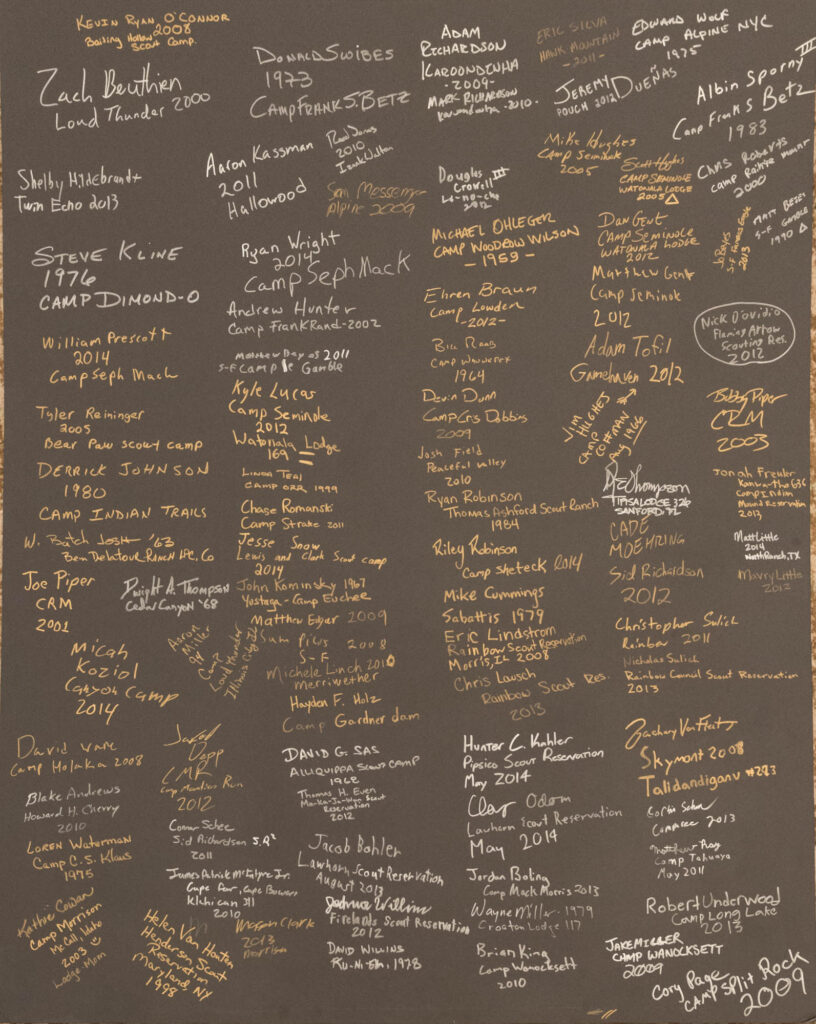 KEVIN RYAN O'CONNOR
2008
Baiting Hollow
Scout Camp.
Zach Beuthien
Loud Thunder 2000
DONALD SWIBES
1973
CAMP FRANK S. BETZ
ADAM
RICHARDSON
KAROONDINHA
-2009-
MARK RICHARDSON
-2010-
ERIC SILVA
HAWK MOUNTAIN
-2011-
EDWARD WOLF
CAMP ALPINE NYC
1975
JEREMY DUEÑAS
POUCH 2012
Albin Sporny III
Camp Frank S Betz
1983
Shelby Hildebrandt
Twin Echo 2013
Aaron Kassman
2011
Hallowood
2010
Sam Messenger
Alpine 2009
Douglas
Crowell III
La-no-che
2012
Mike Hughes
Camp Seminole
2005
Scott Hughes
CAMP SEMINOLE
WATONALA LODGE
2005 △
Chris Roberts
2000
STEVE KLINE
1976
CAMP DIMOND-O
Ryan Wright
2014
Camp Seph Mack
MICHAEL OHLEGER
CAMP WOODROW WILSON
- 1959 -
DAN GENT
CAMP SEMINOLE
WATONALA LODGE
2012
2013
S-F GAMBLE
1990 △
Andrew Hunter
Camp Frank Rand-2002
Ehren Braun
Camp Lowden
-2012-
Matthew Gent
Camp Seminole
2012
Nick D'ovidio
Flaming Arrow
Scouting Res.
2012
William Prescott
2014
Camp Seph Mack
2011
Gamble
1964
Adam Tofil
Gamehaven 2012
Tyler Reininger
2005
Bear Paw scout camp
Kyle Lucas
Camp Seminole
2012
Watonala Lodge
169
Devin Dunn
Camp Cris Dobbins
2009
JIM
HUGHES
CAMP
COFFMAN
Aug 1966
Bobby Piper
CRM
2003
DERRICK JOHNSON
1980
CAMP INDIAN TRAILS
LINDA TEAL
CAMP ORR 1999
Josh Field
Peaceful Valley
2010
Thompson
TIPISA LODGE 326
SANFORD, FL
Jonah Freuler
Camp Indian
Mound Reservation
2013
Chase Romanski
Camp Strake 2011
Ryan Robinson
Thomas Ashford Scout Ranch
1984
W. Butch Josh '63
Ben Delatour Ranch
Jesse Snow
Lewis and Clark Scout Camp
2014
Riley Robinson
Camp Sheteck 2014
CADE
MOEHRING
Sid Richardson
2012
Matt Little
2014
Worth Ranch, TX
Mavry Little
2012
JOE PIPER
CRM
2001
Dwight A. Thompson
Cedar Canyon '68
John Kominsky 1967
Yostaga-Camp Euchee
Mike Cummings
Sabattis 1979
Matthew Edyer 2009
Eric Lindstrom
Rainbow Scout Reservation
Morris, IL 2008
Christopher Sulich
Rainbow 2011
Micah
Koziol
Canyon Camp
2014
Aaron
Miller
Camp
Loud thunder
Illinois City Ill
2008
S-F
Michele Linch 2010
merriwether
Chris Lausch
Rainbow Scout Res.
2013
Nicholas Sulich
Rainbow Council Scout Reservation
2013
Hayden F. Holz
Camp Gardner dam
David Ware
Camp Molaka 2008
Jacob
Dapp
CMR
Camp Meadow Run
2012
DAVID G. SAS
ALIQUIPPA SCOUT CAMP
1962
Hunter C. Kahler
Pipsico Scout Reservation
May 2014
Skymont 2008
Talidandiganu #293
Blake Andrews
Howard H. Cherry
2010
Thomas H. Even
Scout
Reservation
2012
Clay Odom
Lawhorn Scout Reservation
May 2014
2013
LOREN WATERMAN
Camp C.S. Klaus
1975
Connor Schee
Sid Richardson S.R²
2011
Jacob Bohler
Lawhorn Scout Reservation
August 2013
Matthew Ray
Camp Tahuaya
May 2011
James Patrick McIntyre Jr.
Cape Fear, Cape Bowers
Klahican 311
2010
Jordan Boling
Camp Mack Morris 2013
Kathie Cowan
Camp Morrison
McCall, Idaho
2003
Lodge Mom
Helen Van Houten
Henderson Scout
Reservation
Maryland, NY
1998
Megan Clark
2013
Morrison
Joshua Willins
Firelands Scout Reservation
2012
Wayne Miller 1979
Croaton Lodge 117
Robert Underwood
Camp Long Lake
2013
DAVID WILLINS
1978
Brian King
Camp Wanocksett
2010
JAKE MILLER
CAMP WANOCKSETT
2009
Cory Page
CAMP Split Rock
2009